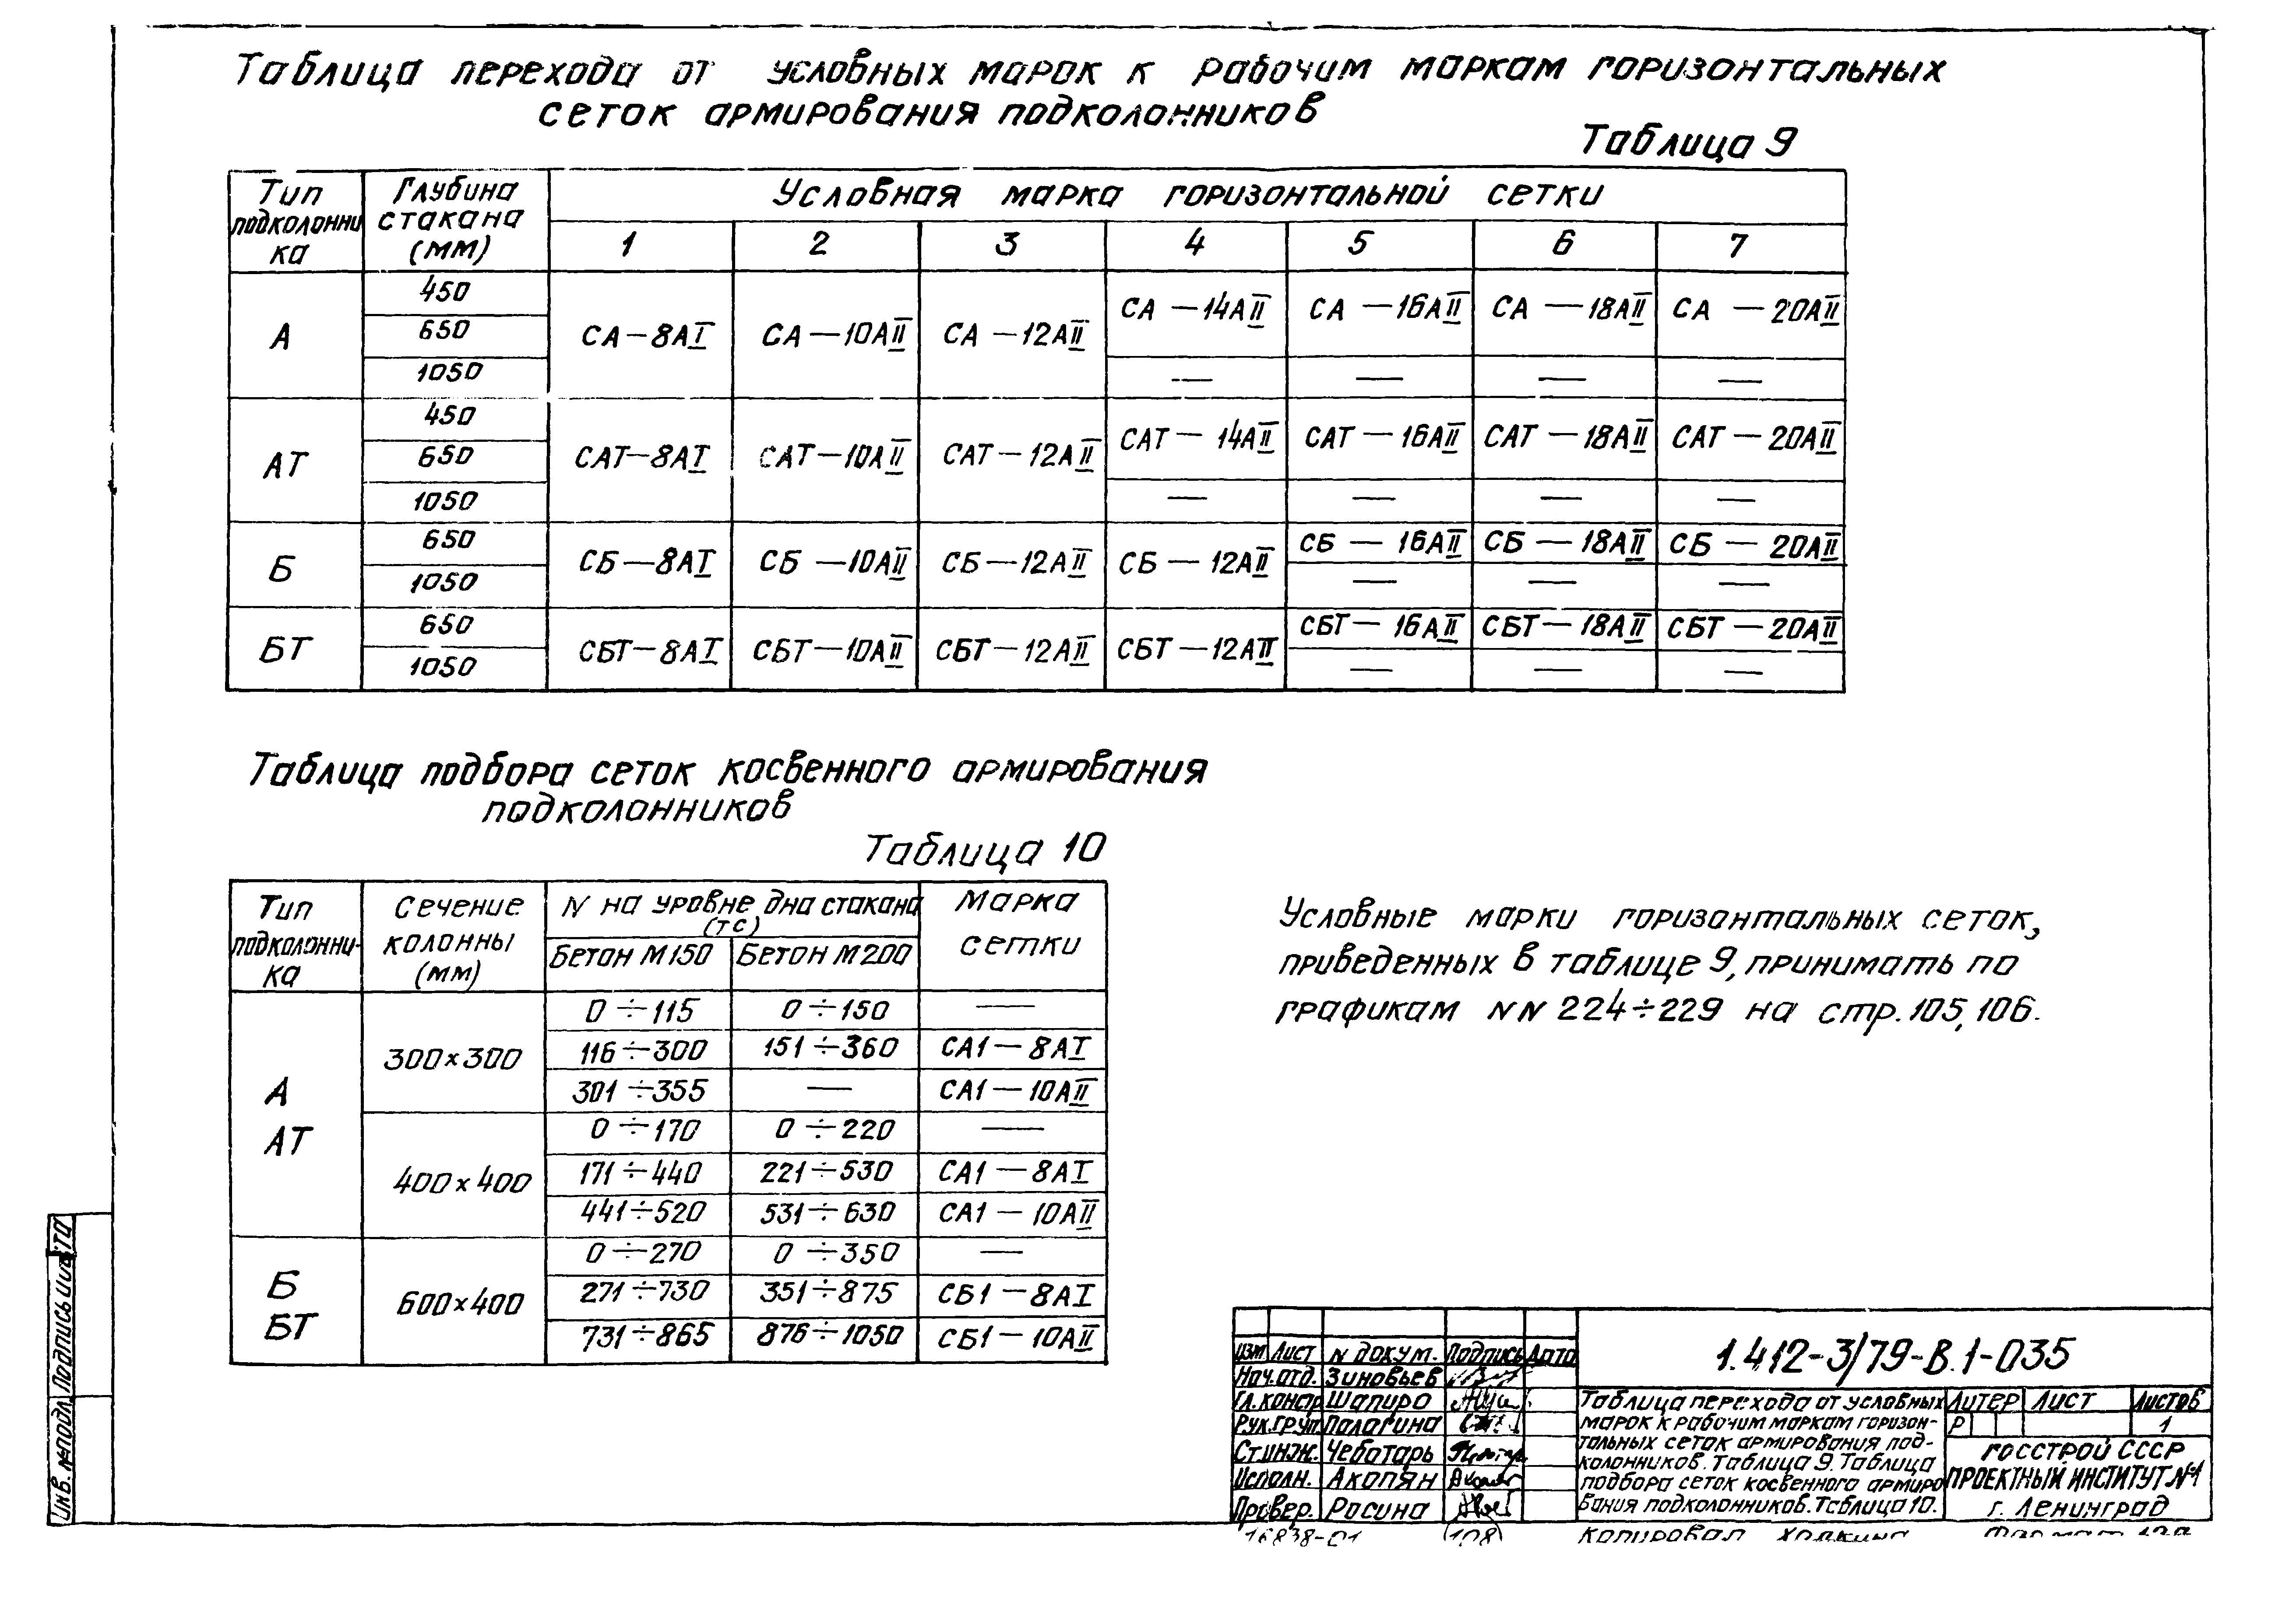 Таблица перехода от условных марок к рабочим маркам горизонтальных
сеток армирования подколонников
Таблица 9
Тип подколонни ка | Глубина стакана (мм) | Условная марка горизонтальной сетки
1 2 3 4 5 6 7
А
450
650
1050
СА—8АI СА—10АII СА—12АII СА—14АII СА—16АII СА—18АII СА—20АII
— — — —
АТ
450
650
1050
САТ—8АI САТ—10АII САТ—12АII САТ—14АII САТ—16АII САТ—18АII САТ—20АII
— — — —
Б
650
1050
СБ—8АI СБ—10АII СБ—12АII СБ—12АII СБ—16АII СБ—18АII СБ—20АII
— — —
БТ
650
1050
СБТ—8АI СБТ—10АII СБТ—12АII СБТ—12АII СБТ—16АII СБТ—18АII СБТ—20АII
— — —
Таблица подбора сеток косвенного армирования
подколонников
Таблица 10
Тип подколонни-ка | Сечение колонны (мм) | N на уровне дна стакана (тс) | Марка сетки
Бетон М150 Бетон М200
А
АТ
300×300
0÷115 0÷150 —
116÷300 151÷360 СА1—8АI
301÷355 — СА1—10АII
400×400
0÷170 0÷220 —
171÷440 221÷530 СА1—8АI
441÷520 531÷630 СА1—10АII
Б
БТ
600×400
0÷270 0÷350 —
271÷730 351÷875 СБ1—8АI
731÷865 876÷1050 СБ1—10АII
Условные марки горизонтальных сеток,
приведенных в таблице 9, принимать по
графикам NN 224÷229 на стр. 105, 106.
Инв. №подл. Подпись и
изм Лист N докум. Подпись Дата
Нач.отд. Зиновьев
Гл.констр Шапиро
Рук.груп Палагина
Ст.инж. Чеботарь
Исполн. Акопян
Провер. Росина
1.412-3/79-В.1-035
Таблица перехода от условных
марок к рабочим маркам горизон-
тальных сеток армирования под-
колонников. Таблица 9. Таблица
подбора сеток косвенного армиро
вания подколонников. Таблица 10.
Литер Лист Листов
Р 1
ГОССТРОЙ СССР
ПРОЕКТНЫЙ ИНСТИТУТ №1
г. Ленинград
16838-01 108 Копировал Формат 12а